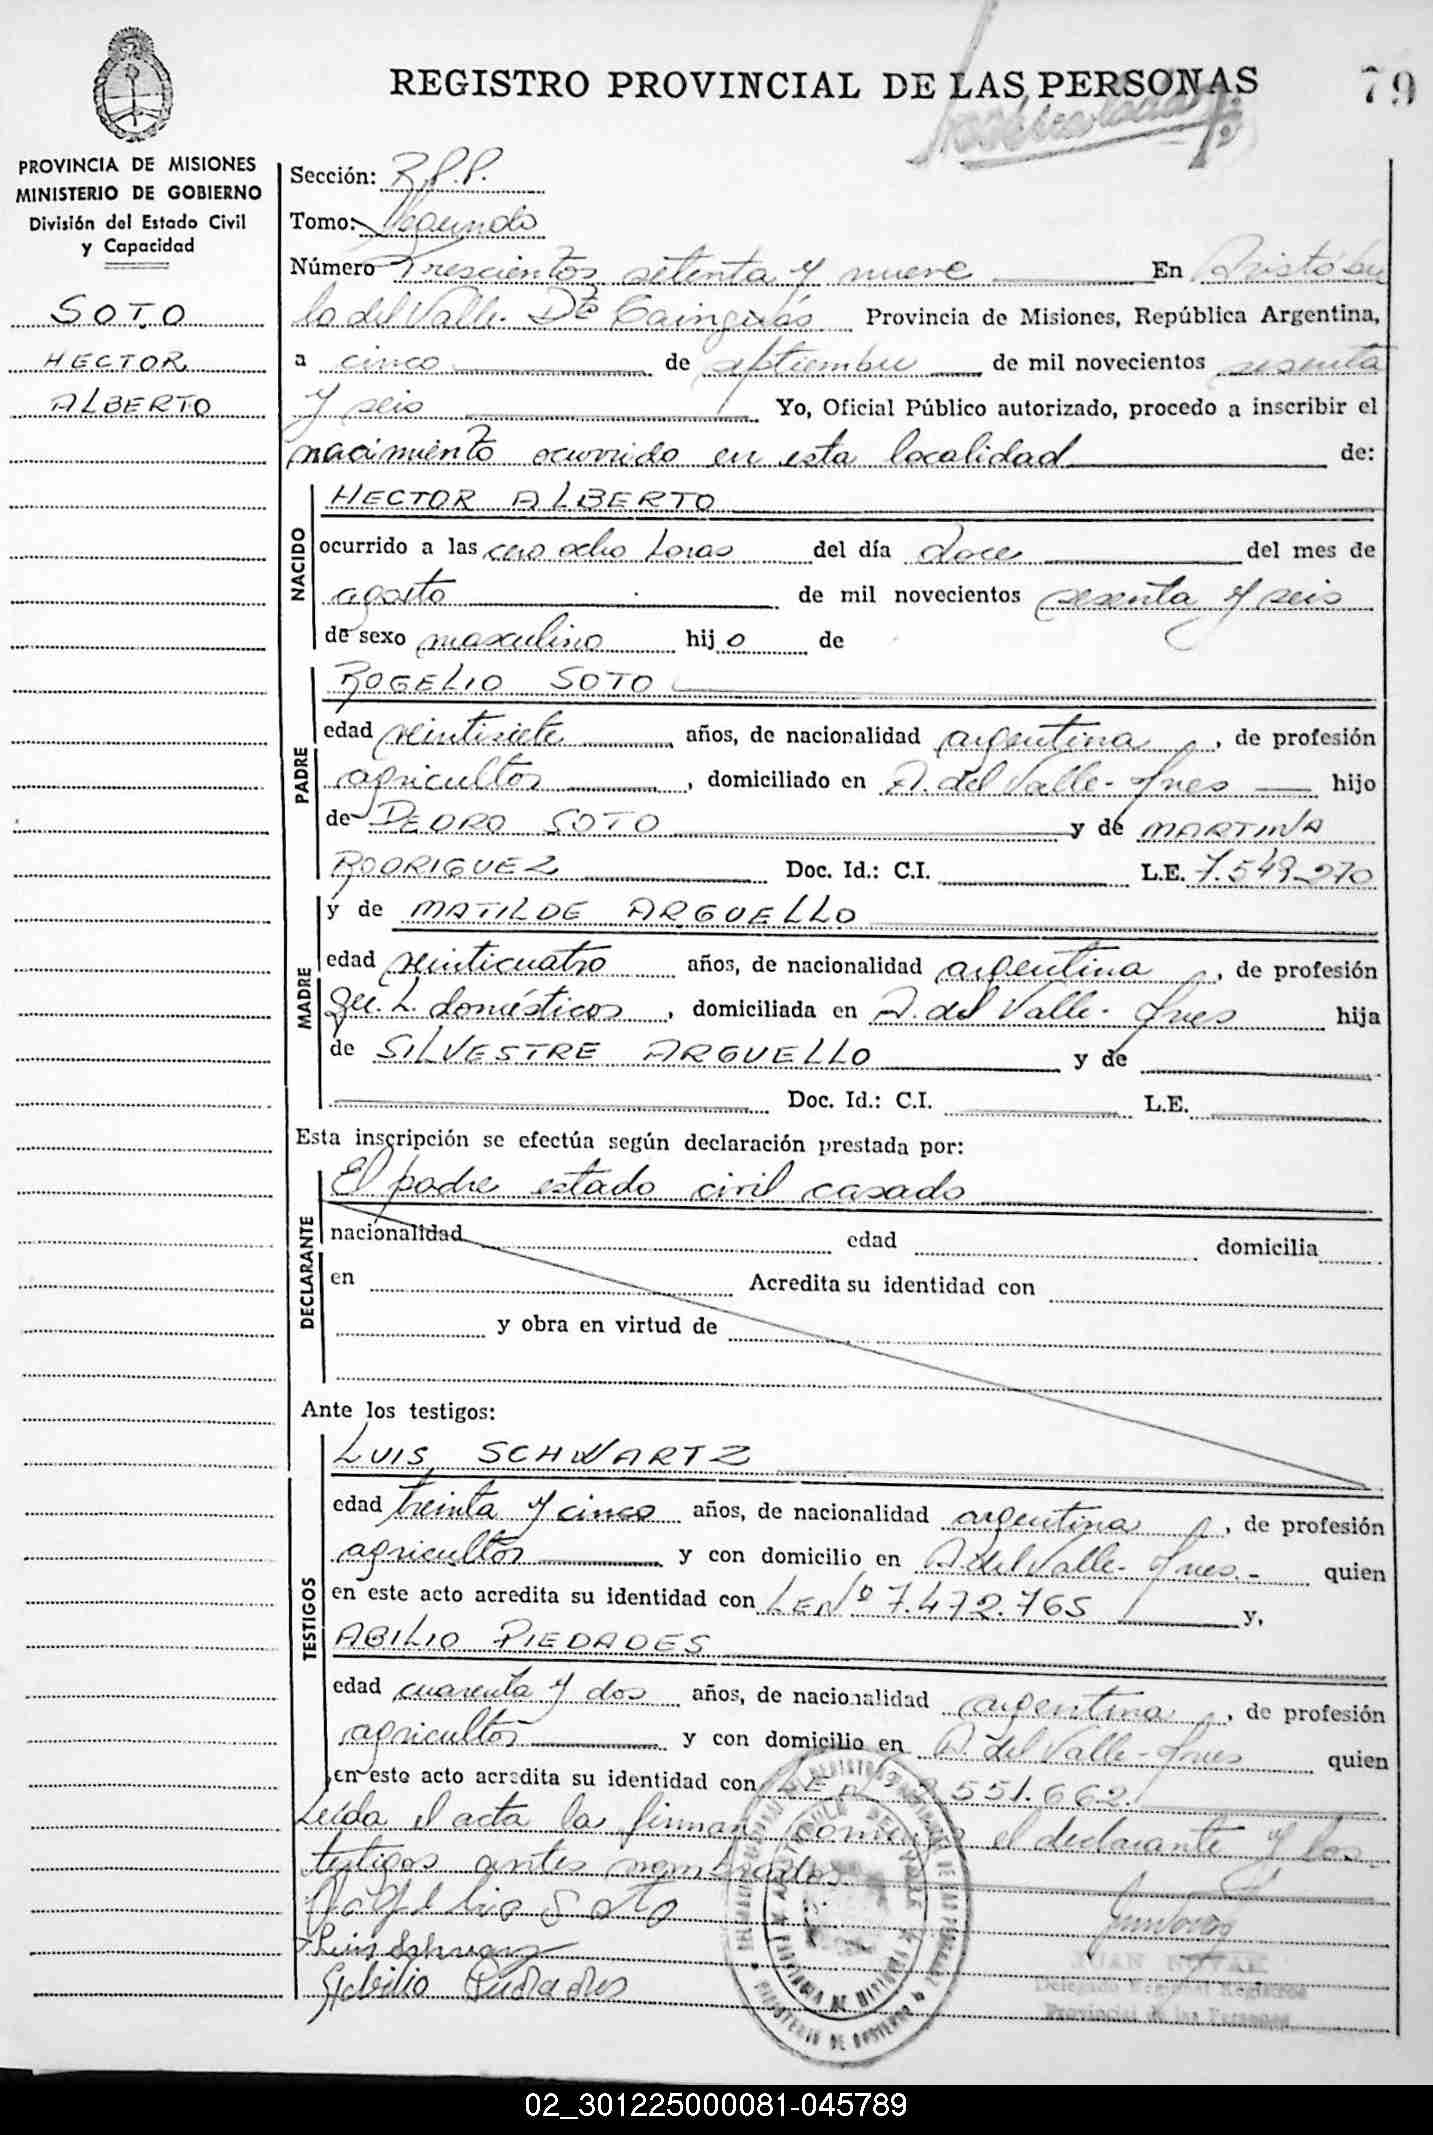 REGISTRO PROVINCIAL DE LAS PERSONAS
79
PROVINCIA DE MISIONES
MINISTERIO DE GOBIERNO
División del Estado Civil
y Capacidad
SOTO
HECTOR
ALBERTO
Sección: R.P.P.
Tomo: Segundo
Número Trescientos setenta y nueve En Aristóbu
lo del Valle. Dto Cainguás Provincia de Misiones, República Argentina,
a cinco de septiembre de mil novecientos sesenta
y seis Yo, Oficial Público autorizado, procedo a inscribir el
nacimiento ocurrido en esta localidad de:
NACIDO
HECTOR ALBERTO
ocurrido a las cero ocho horas del día doce del mes de
agosto de mil novecientos sesenta y seis
de sexo masculino hijo de
PADRE
ROGELIO SOTO
edad veintisiete años, de nacionalidad argentina, de profesión
agricultor, domiciliado en A. del Valle- Mnes hijo
de PEDRO SOTO y de MARTINA
RODRIGUEZ Doc. Id.: C.I. L.E. 7.549.270
MADRE
y de MATILDE ARGUELLO
edad veinticuatro años, de nacionalidad argentina, de profesión
Que. L. domésticos, domiciliada en A. del Valle- Mnes hija
de SILVESTRE ARGUELLO y de
Doc. Id.: C.I. L.E.
Esta inscripción se efectúa según declaración prestada por:
DECLARANTE
El padre estado civil casado
nacionalidad edad domicilia
en Acredita su identidad con
y obra en virtud de
Ante los testigos:
TESTIGOS
LUIS SCHWARTZ
edad treinta y cinco años, de nacionalidad argentina, de profesión
agricultor y con domicilio en A. del Valle- Mnes.- quien
en este acto acredita su identidad con LE Nº 7.472.765 y,
ABILIO PIEDADES
edad cuarenta y dos años, de nacionalidad argentina, de profesión
agricultor y con domicilio en A. del Valle- Mnes quien
en este acto acredita su identidad con LE Nº 551.662.
Leida el acta la firman conmigo el declarante y los
testigos antes nombrados.
Rogelio Soto
Luis Schwarz
Abilio Piedades
JUAN NOVAK
Delegado Regional Registro
Provincial de las Personas
02_301225000081-045789